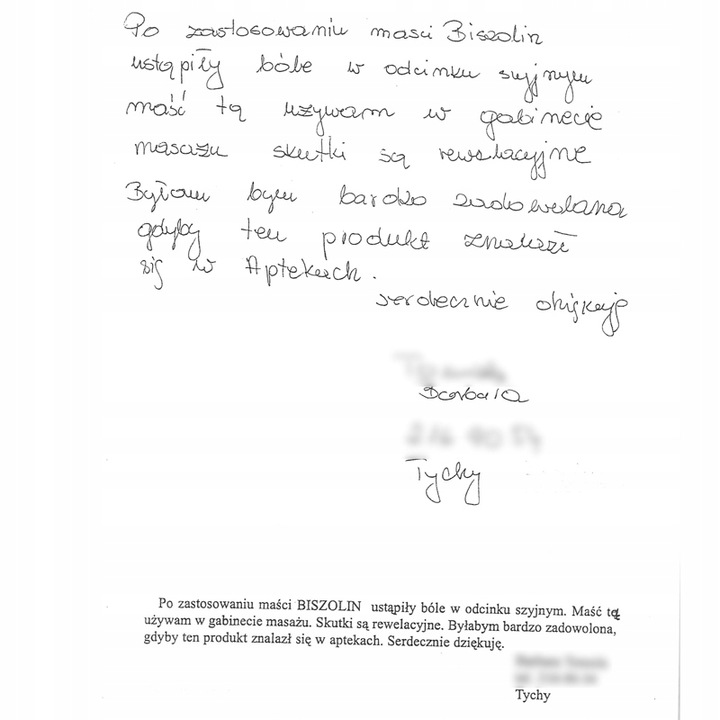 Po zastosowaniu maści Biszolin
ustąpiły bóle w odcinku szyjnym
maść tą używam w gabinecie
masażu skutki są rewelacyjne
Byłam bym bardzo zadowolona
gdyby ten produkt znalazł
się w Aptekach.
serdecznie dziękuję
Barbara
Tychy
Po zastosowaniu maści BISZOLIN ustąpiły bóle w odcinku szyjnym. Maść tą
używam w gabinecie masażu. Skutki są rewelacyjne. Byłabym bardzo zadowolona,
gdyby ten produkt znalazł się w aptekach. Serdecznie dziękuję.
Tychy